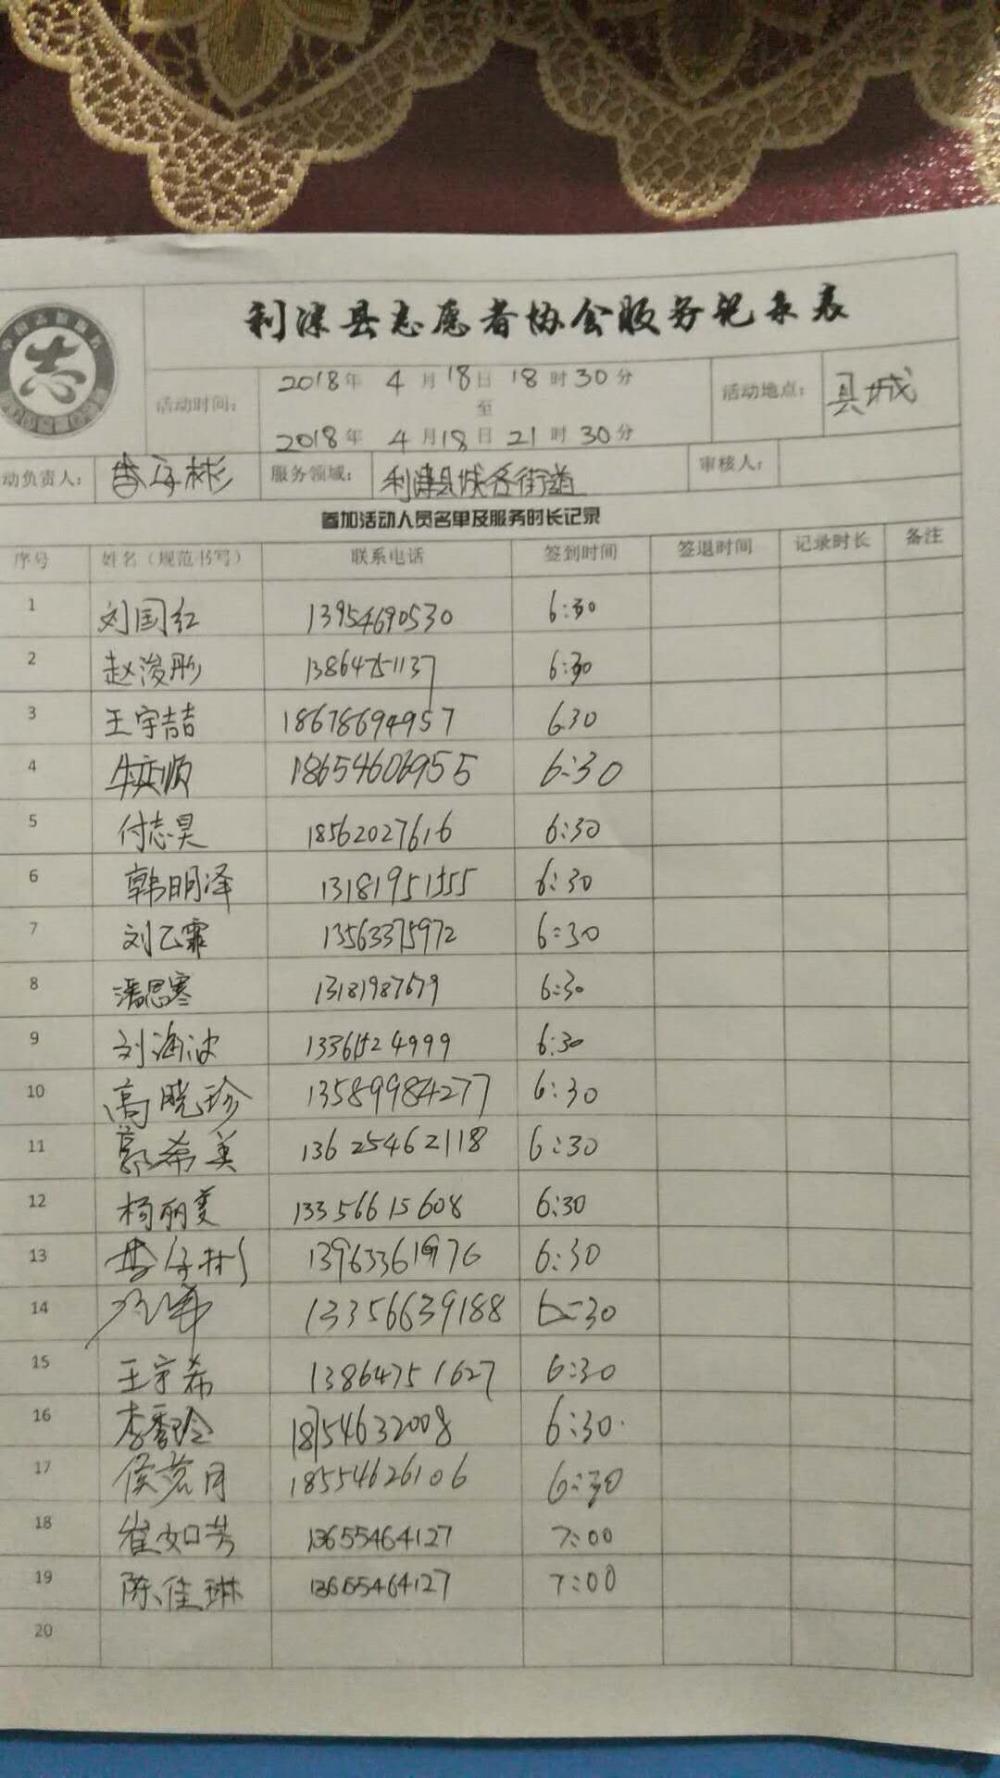 利津县志愿者协会服务记录表
志
活动时间：
2018年 4月18日 18时30分
至
2018年 4月18日 21时30分
活动地点： 县城
动负责人：
服务领域： 利津县城各街道
审核人：
参加活动人员名单及服务时长记录
序号 姓名（规范书写） 联系电话 签到时间 签退时间 记录时长 备注
1 刘国红 13954690530 6:30
2 赵浚彤 13864751137 6:30
3 王宇喆 18678694957 6:30
4 18654606955 6:30
5 付志昊 18562027616 6:30
6 韩明泽 13181951555 6:30
7 刘乙霖 13563375972 6:30
8 潘思寒 13181987679 6:30
9 刘海波 6:30
10 高晓珍 13589984277 6:30
11 郭希美 13625462118 6:30
12 杨丽美 13356615608 6:30
13 6:30
14 13356639188 6:30
15 王宇希 13864751627 6:30
16 李香玲 18154632008 6:30
17 侯茗月 18554626106 6:30
18 崔如芳 13655464127 7:00
19 陈佳琳 13665464127 7:00
20